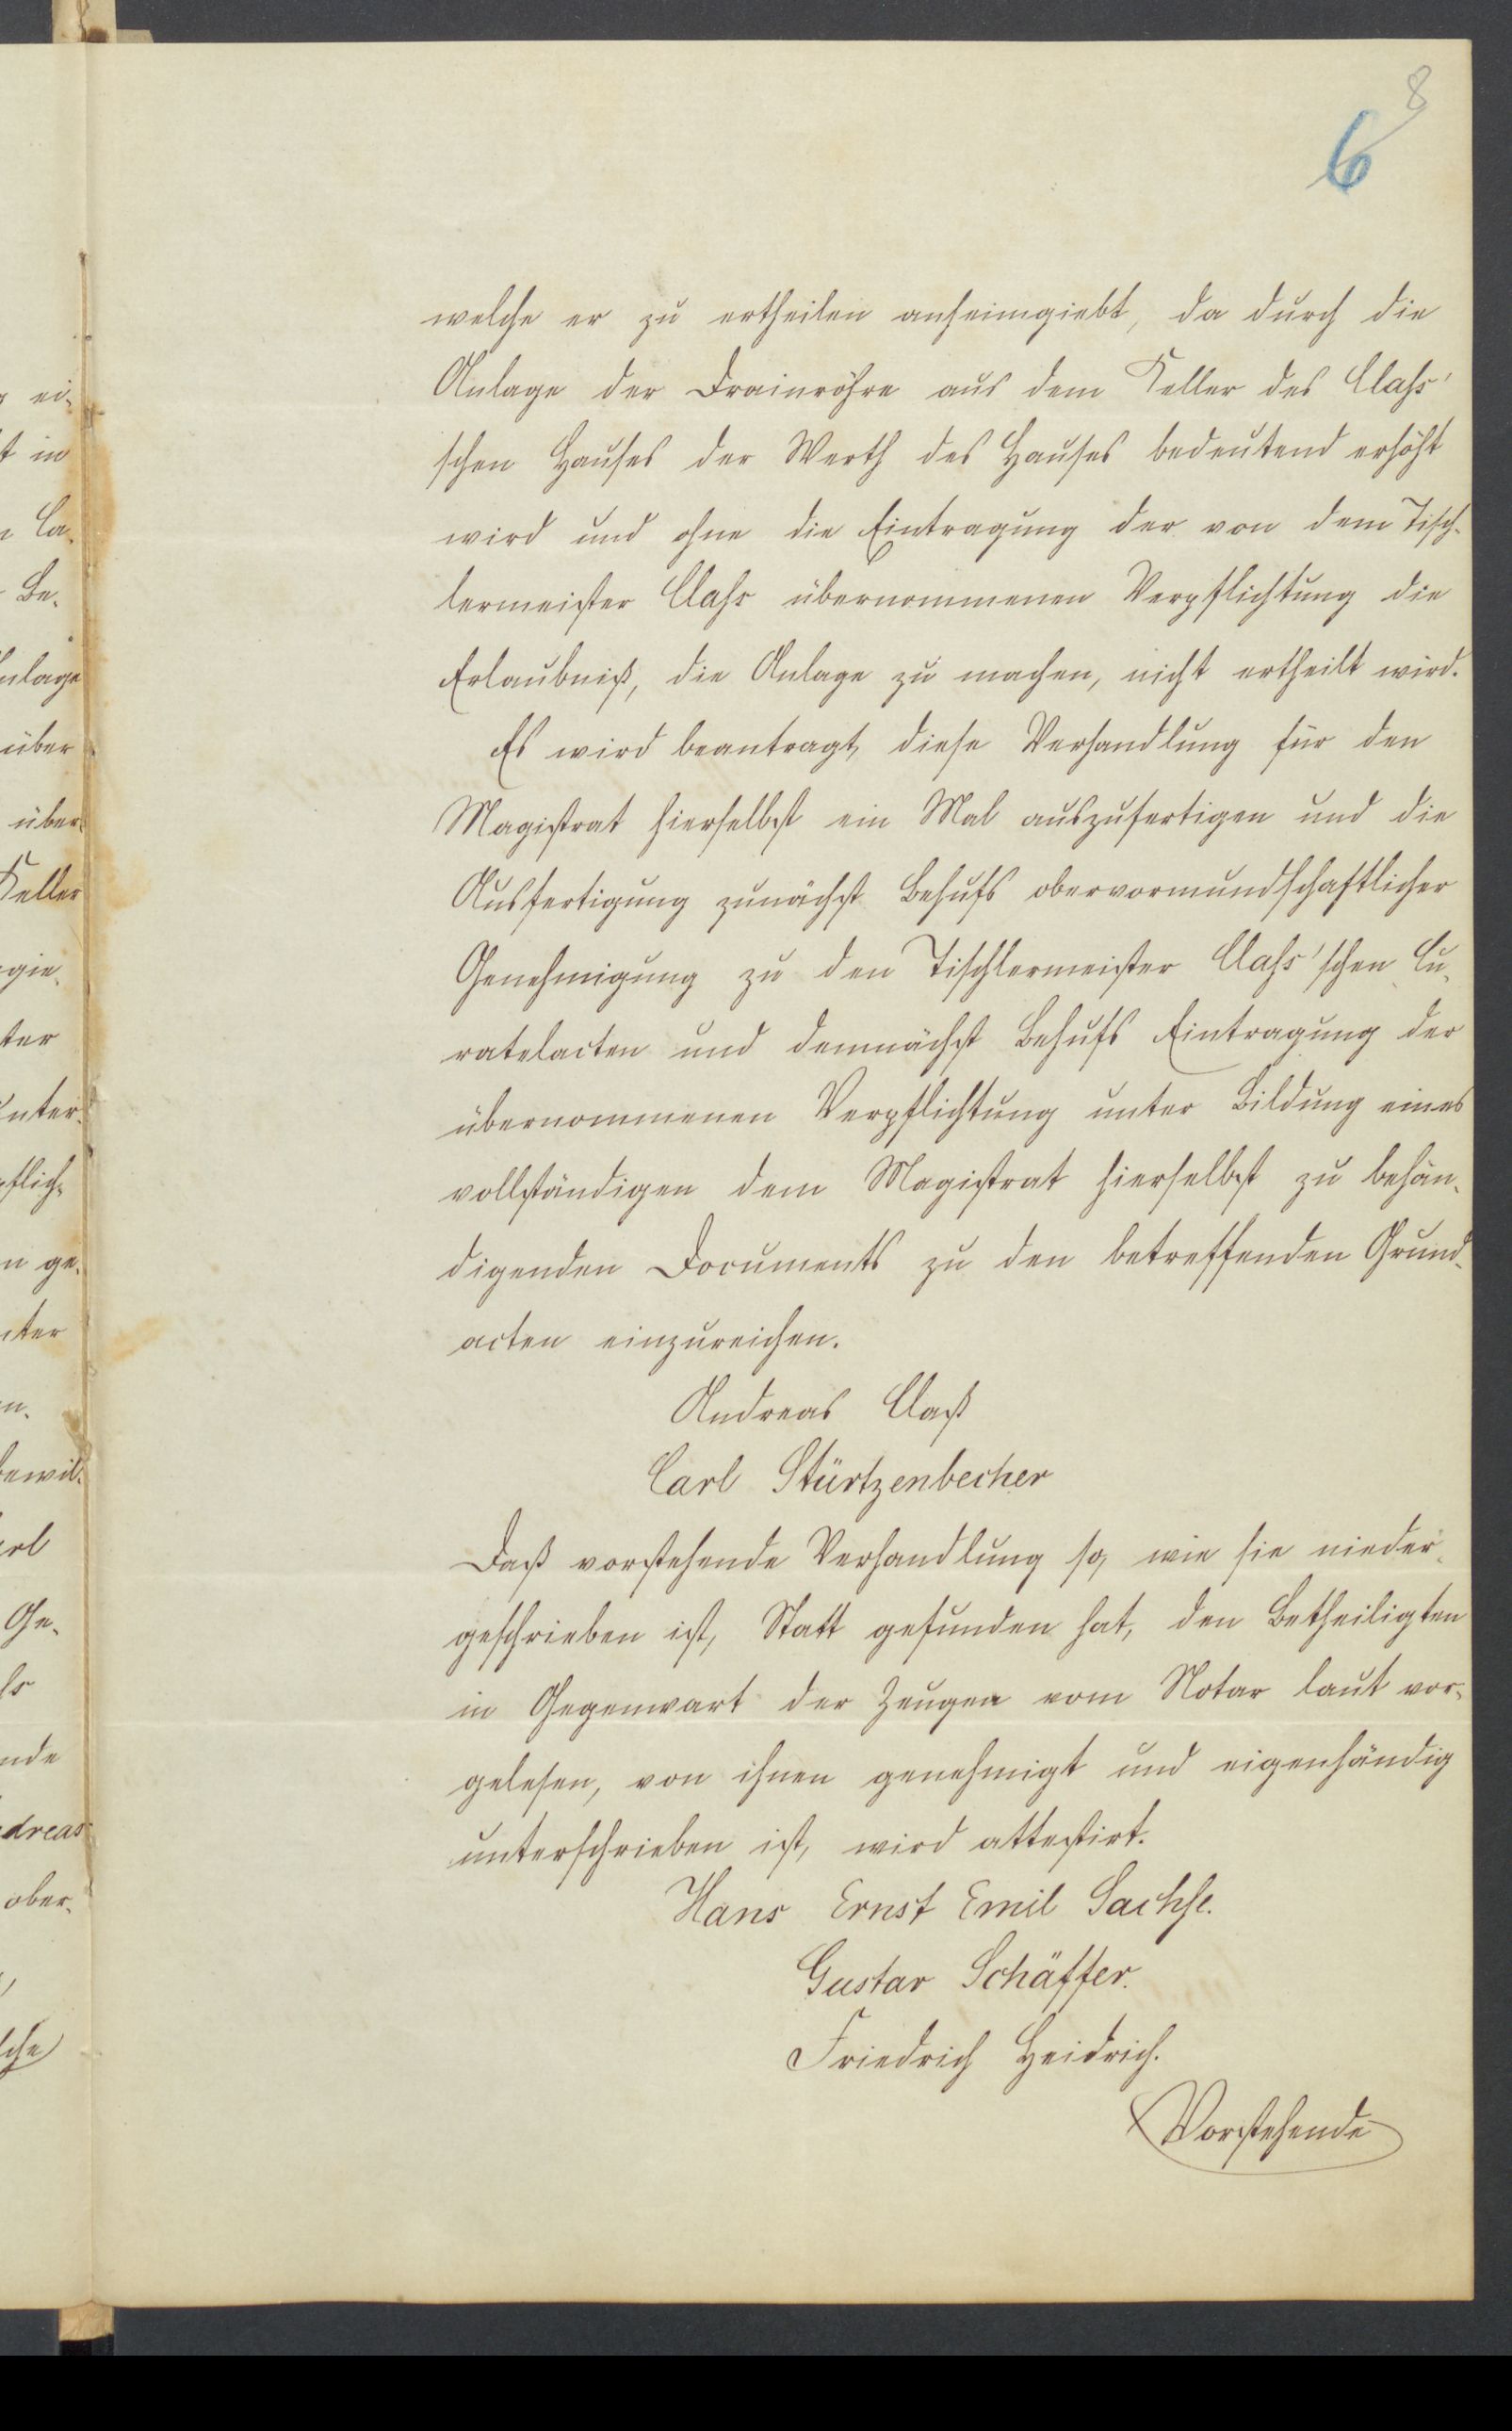 8
6
welche er zu ertheilen anheimgiebt, da durch die
Anlage der Drainröhre aus dem Keller des Clahs'
schen Hauses der Werth des Hauses bedeutend erhöht
wird und ohne die Eintragung der von dem Tisch-
lermeister Clahs übernommenen Verpflichtung die
Erlaubniß, die Anlage zu machen, nicht ertheilt wird.
Es wird beantragt, diese Verhandlung für den
Magistrat hierselbst ein Mal auszufertigen und die
Ausfertigung zunächst Behufs obervormundschaftlicher
Genehmigung zu den Tischlermeister Clahs'schen Cu-
ratelacten und demnächst Behufs Eintragung der
übernommenen Verpflichtung unter Bildung eines
vollständigen dem Magistrat hierselbst zu behän-
digenden Documents zu den betreffenden Grund-
acten einzureichen.
Andreas Claß
Carl Stürtzenbecher
Daß vorstehende Verhandlung so, wie sie nieder-
geschrieben ist, Statt gefunden hat, den Betheiligten
in Gegenwart der Zeugen vom Notar laut vor-
gelesen, von ihnen genehmigt und eigenhändig
unterschrieben ist, wird attestirt.
Hans Ernst Emil Sachse.
Gustav Schäffer.
Friedrich Heidrich.
Vorstehende